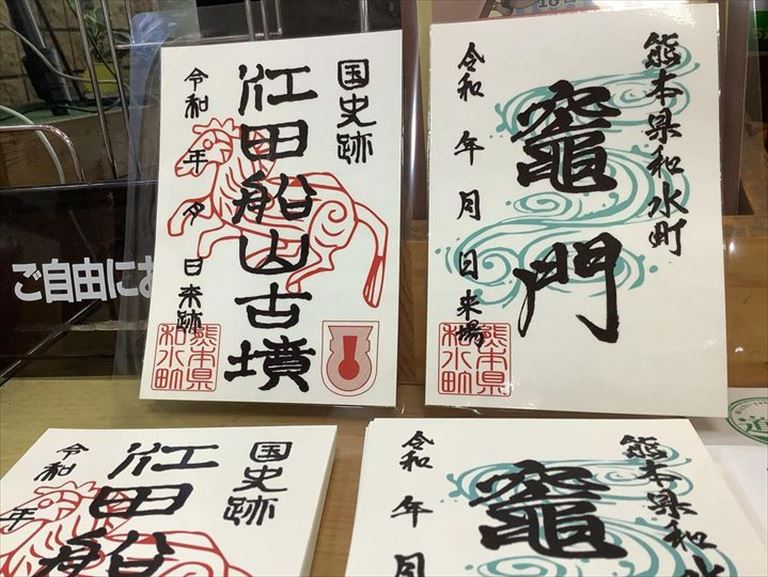 国史跡
江田船山古墳
令和 年 月 日来跡
熊本県
和水町
熊本県和水町
竈門
令和 年 月 日来場
熊本県
和水町
ご自由にお
国史跡
江田船
令和 年
熊本県和水
竈
令和 年 月